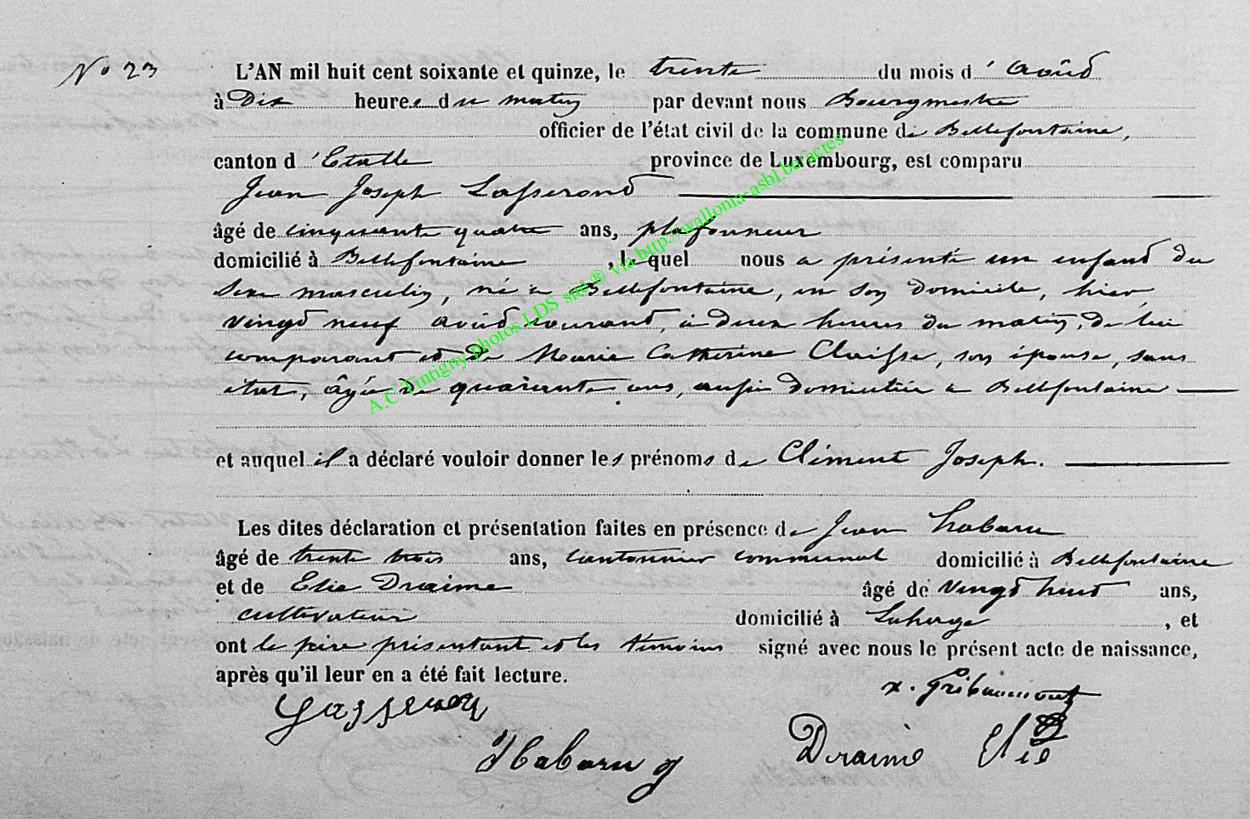 No 23
L'AN mil huit cent soixante et quinze, le trente du mois d'Août
à Dix heures du matin par devant nous Bourgmestre
officier de l'état civil de la commune de Bellefontaine,
canton d'Etalle province de Luxembourg, est comparu
Jean Joseph Lasserond
âgé de cinquante quatre ans, plafonneur
domicilié à Bellefontaine, lequel nous a présenté un enfant du
sexe masculin, né à Bellefontaine, en son domicile, hier,
vingt neuf août courant, à deux heures du matin, de lui
comparant et de Marie Catherine Claisse, son épouse, sans
état, âgée de quarante ans, aussi domiciliée à Bellefontaine
et auquel il a déclaré vouloir donner les prénoms de Clément Joseph.
Les dites déclaration et présentation faites en présence de Jean Habaru
âgé de trente trois ans, cantonnier communal domicilié à Bellefontaine
et de Elie Draime âgé de vingt huit ans,
cultivateur domicilié à Lahage, et
ont le père présentant et les témoins signé avec nous le présent acte de naissance,
après qu'il leur en a été fait lecture.
x. Gribaumont
Habaru J
Draime Elie
A.C Tintigny photos LDS site® via http://wallonia-asbl.be/actes